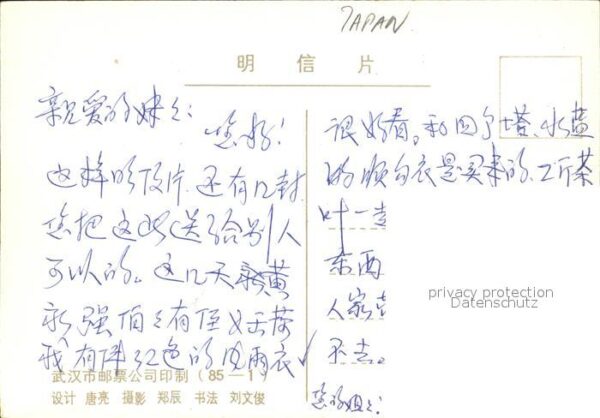 JAPAN
明信片
亲爱的妹妹：
您好！
这样的 片 还有几封
您把这些送给别人
可以的。这几天
强伯伯有
我有件红色的风雨衣
很好看。和四个塔、水
衣是买来的、2斤茶
叶一
东西
人家
不去。
您的姐姐：
武汉市邮票公司印制（85—1）
设计 唐亮 摄影 郑辰 书法 刘文俊
privacy protection
Datenschutz